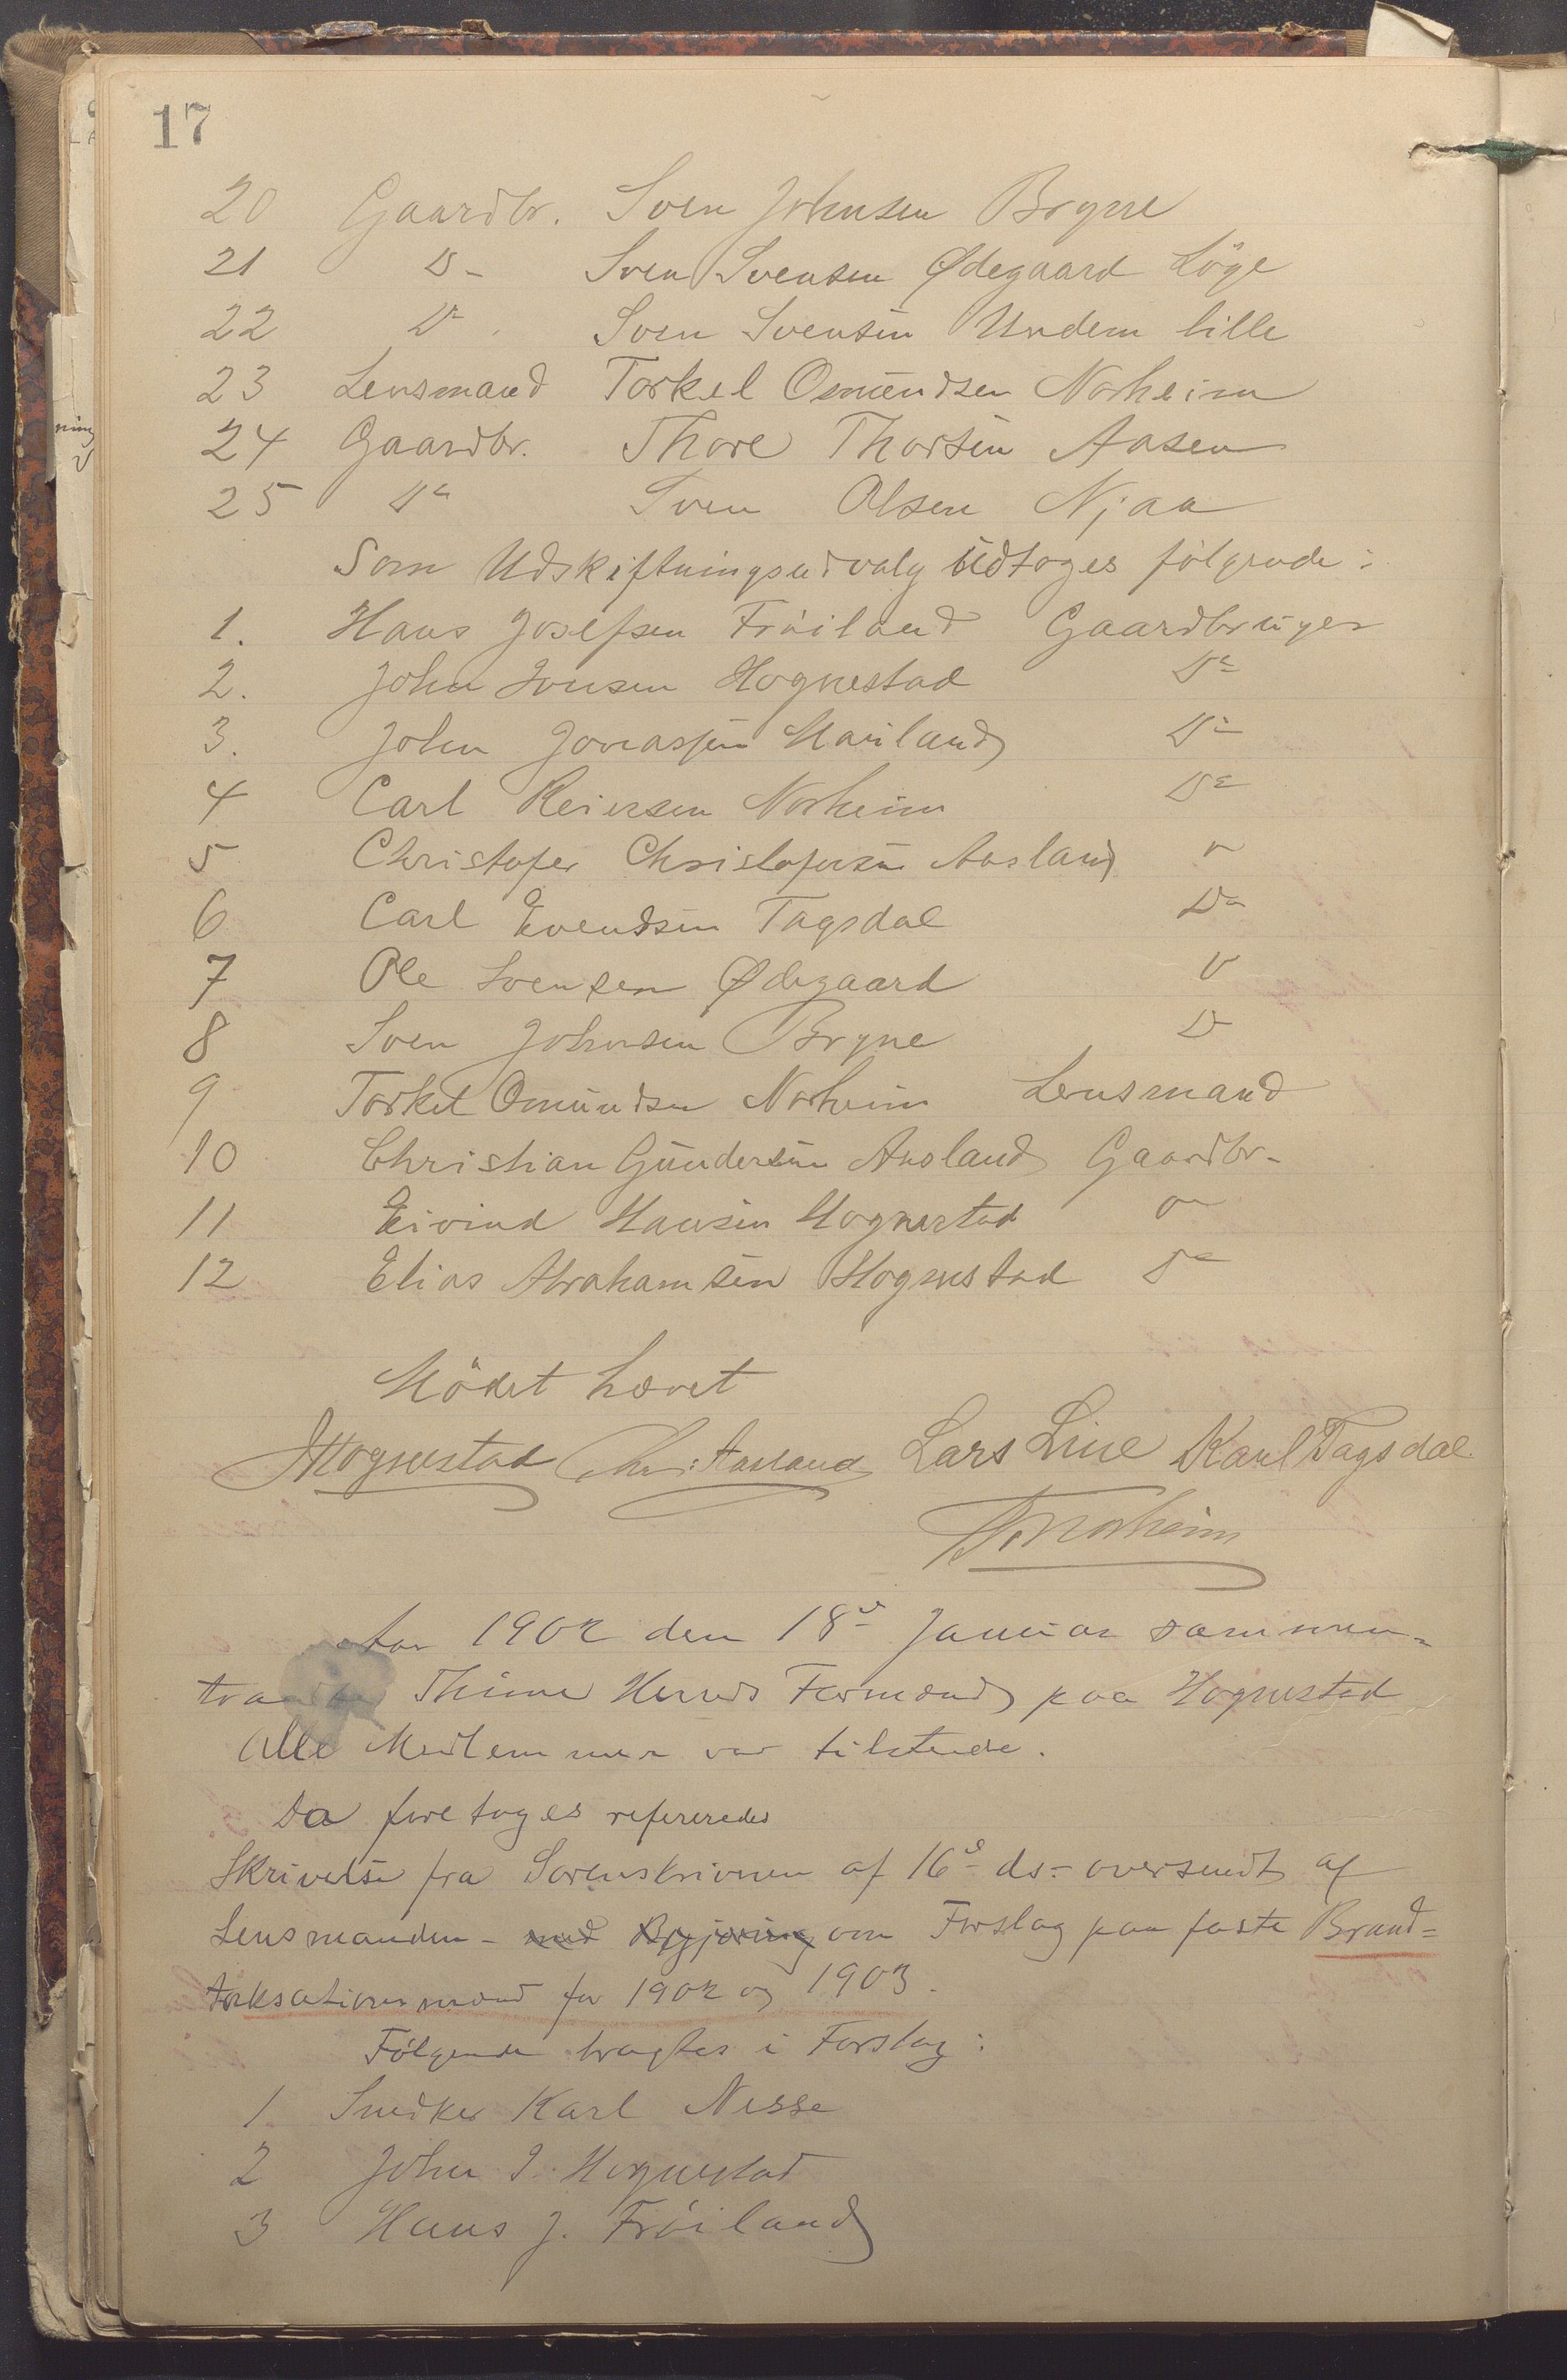 17
20 Gaardbr. Sven Johnsen Bryne
21 Do Sven Svensen Ødegaard Löge
22 Do Sven Svensen Undem lille
23 Lensmand Torkel Osmundsen Norheim
24 Gaardbr. Thore Thorsen Aasen
25 Do Sven Olsen Njaa
Som Udskiftningsudvalg udtoges fölgende:
1. Hans Josefsen Fröiland Gaardbruger
2. John Iversen Hognestad Do
3. John Jonassen Hauland Do
4 Carl Reiersen Norheim Do
5 Christofer Christofersen Aasland
6 Carl Evendsen Tagsdal Do
7 Ole Svensen Ødegaard D
8 Sven Johnsen Bryne D
9 Torkel Omundsen Norheim Lensmand
10 Christian Gundersen Aasland Gaardbr-
11 Eivind Hansen Hognestad
12 Elias Abrahamsen Hognestad Do
Mödet hævet
Hognestad Chr: Aasland Lars Line Karl Tagsdal
T. O. Norheim
Aar 1902 den 18de Januar sammen-
traadte Thime Herreds Formænd paa Hognestad
Alle Medlemmer var tilstede.
Da foretoges refereredes
Skrivelse fra Sorenskriveren af 16de ds- oversendt af
Lensmanden - med Begjæring om Forslag paa faste Brand=
taksationsmænd for 1902 og 1903.
Fölgende bragtes i Forslag:
1 Snedker Karl Nesse
2 John I. Hognestad
3 Hans J. Fröiland